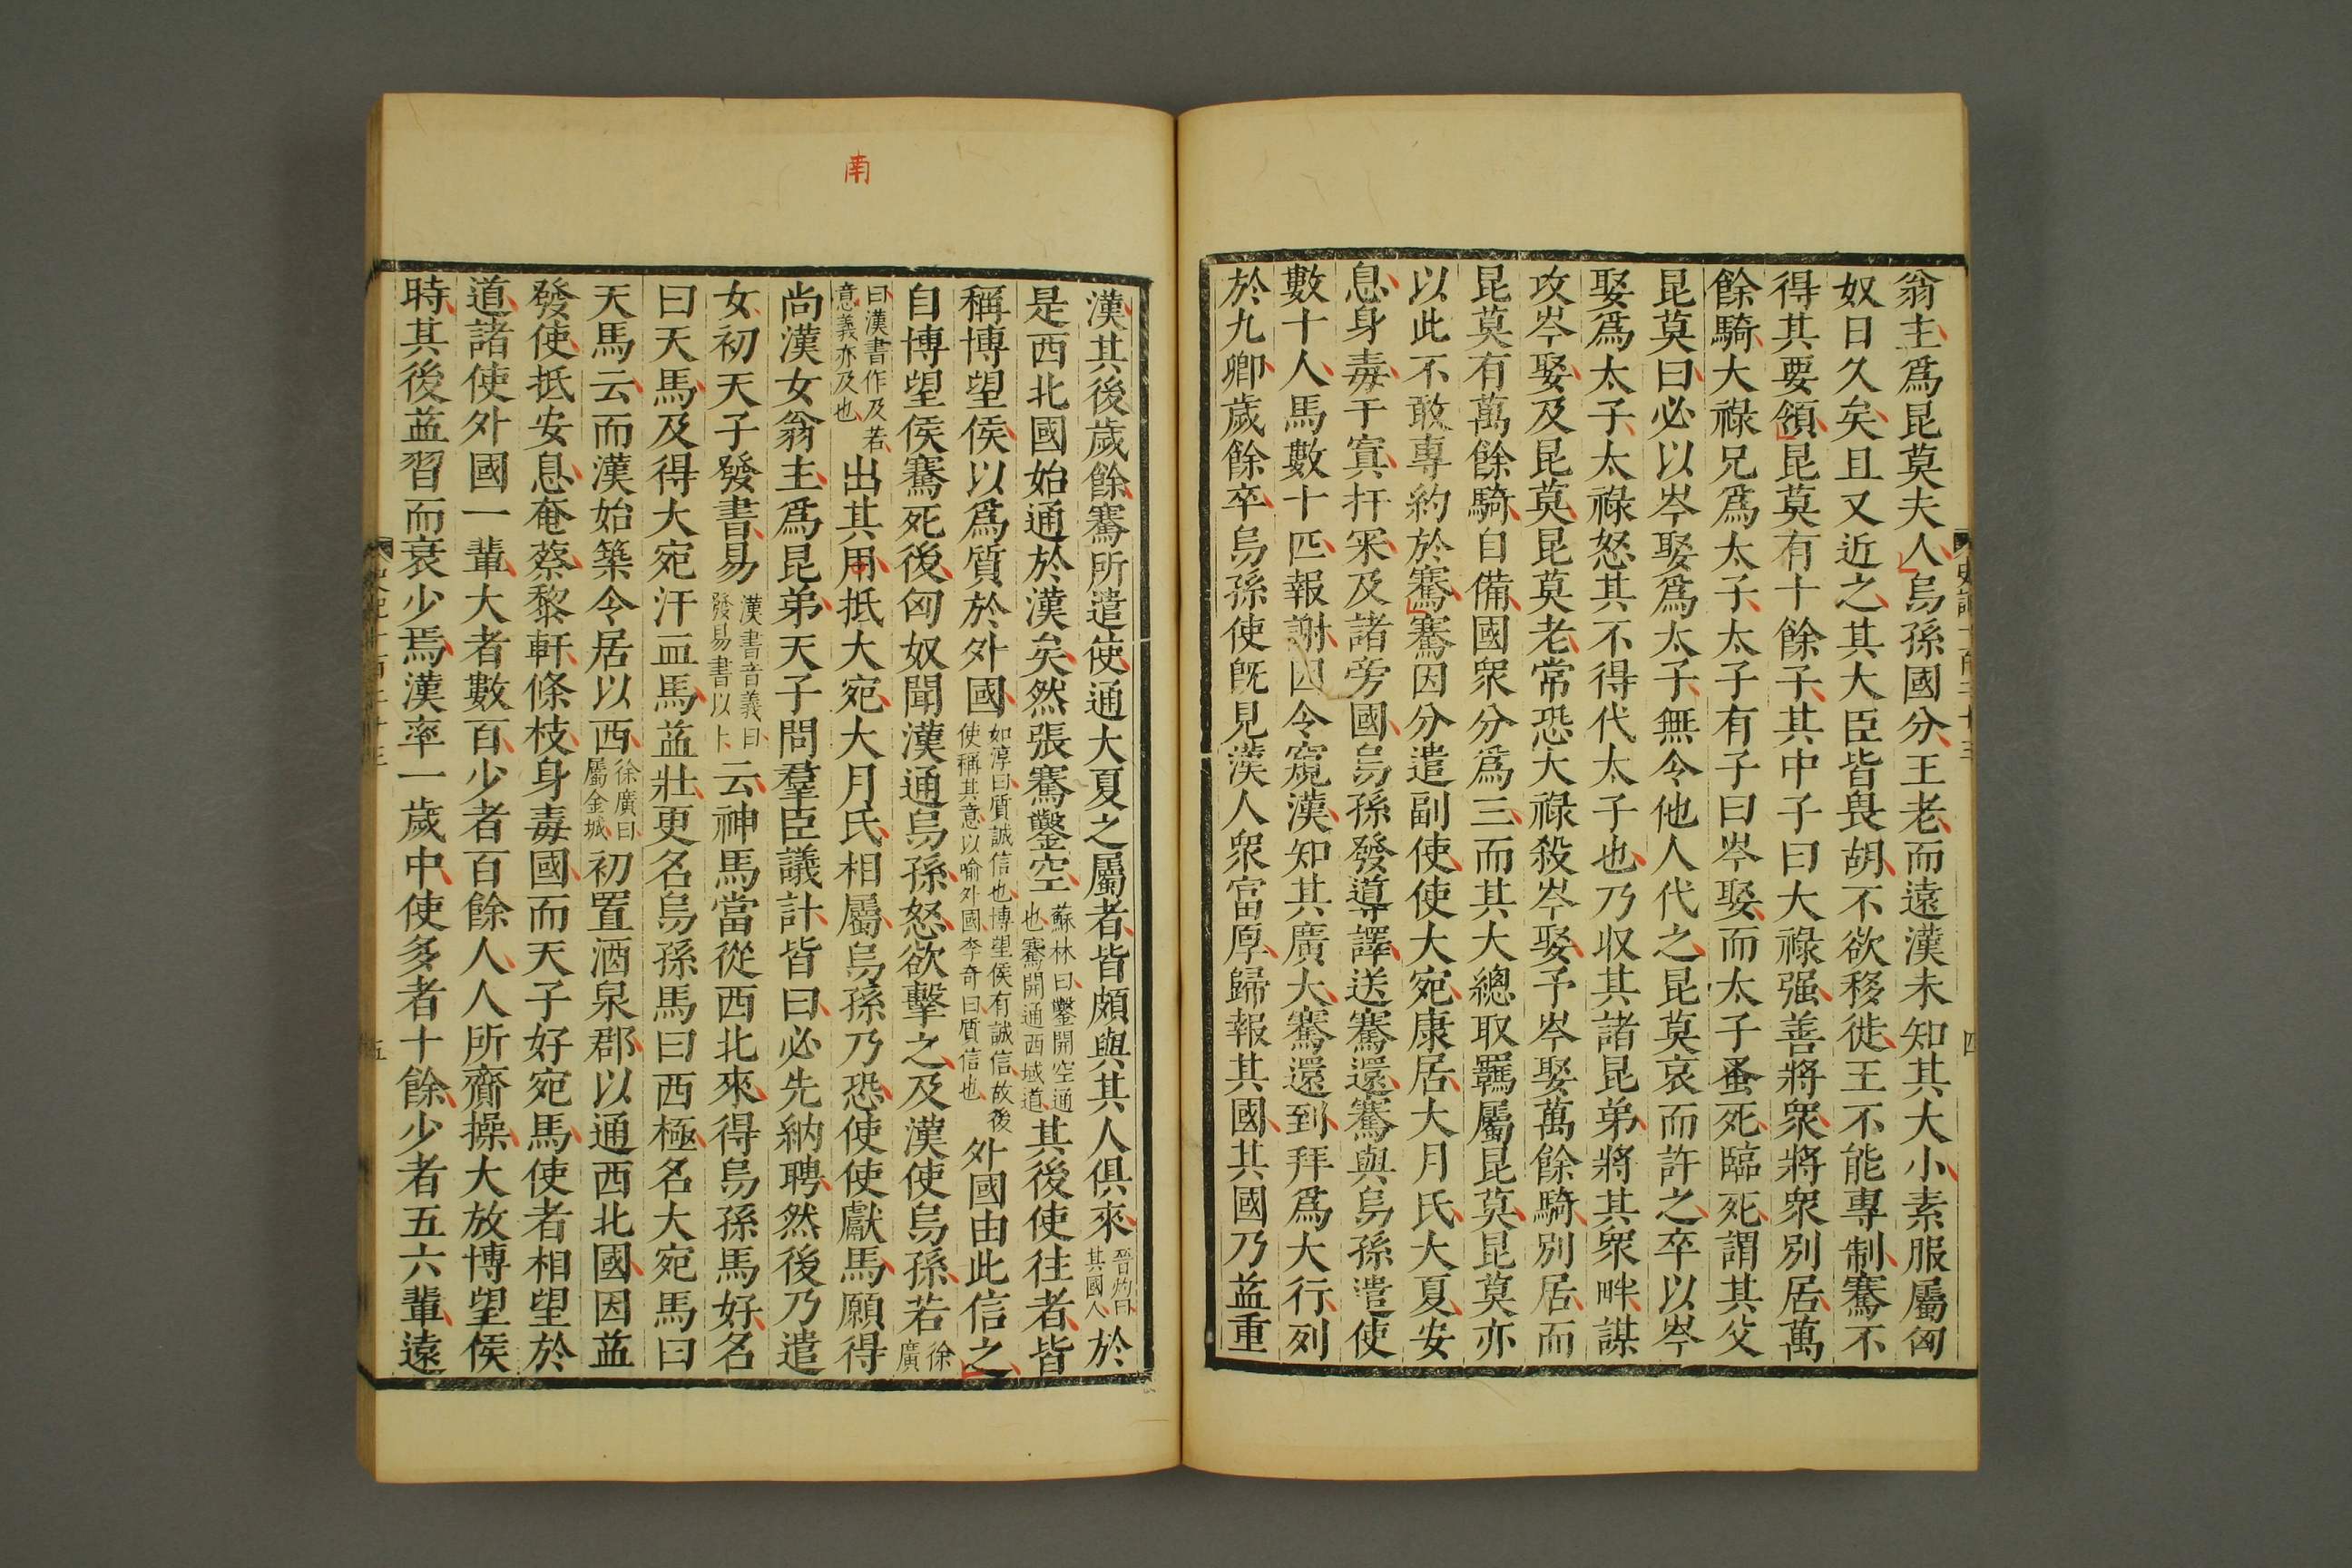 翁主爲昆莫夫人烏孫國分王老而遠漢未知其大小素服屬匈
奴日久矣且又近之其大臣皆畏胡不欲移徙王不能專制騫不
得其要領昆莫有十餘子其中子曰大祿强善將衆將衆別居萬
餘騎大祿兄爲太子太子有子曰岑娶而太子蚤死臨死謂其父
昆莫曰必以岑娶爲太子無令他人代之昆莫哀而許之卒以岑
娶爲太子太祿怒其不得代太子也乃収其諸昆弟將其衆畔謀
攻岑娶及昆莫昆莫老常恐大祿殺岑娶予岑娶萬餘騎別居而
昆莫有萬餘騎自備國衆分爲三而其大總取羈屬昆莫昆莫亦
以此不敢專約於騫騫因分遣副使使大宛康居大月氏大夏安
息身毒于窴扜冞及諸旁國烏孫發導譯送騫還騫與烏孫遣使
數十人馬數十匹報謝因令窺漢知其廣大騫還到拜爲大行列
於九卿歲餘卒烏孫使旣見漢人衆富厚歸報其國其國乃益重
四
漢其後歲餘騫所遣使通大夏之屬者皆頗與其人俱來晉灼曰其國人於
是西北國始通於漢矣然張騫鑿空蘇林曰鑿開空通也騫開通西域道其後使往者皆
稱博望侯以爲質於外國如淳曰質誠信也博望侯有誠信故後使稱其意以喻外國李奇曰質信也外國由此信之
自博望侯騫死後匈奴聞漢通烏孫怒欲擊之及漢使烏孫若徐廣
曰漢書作及若意義亦及也出其用抵大宛大月氏相屬烏孫乃恐使使獻馬願得
尚漢女翁主爲昆弟天子問羣臣議計皆曰必先納聘然後乃遣
女初天子發書易漢書音義曰發易書以卜云神馬當從西北來得烏孫馬好名
曰天馬及得大宛汗血馬益壯更名烏孫馬曰西極名大宛馬曰
天馬云而漢始築令居以西徐廣曰屬金城初置酒泉郡以通西北國因益
發使抵安息奄蔡黎軒條枝身毒國而天子好宛馬使者相望於
道諸使外國一輩大者數百少者百餘人人所齎操大放博望侯
時其後益習而衰少焉漢率一歲中使多者十餘少者五六輩遠
五
南